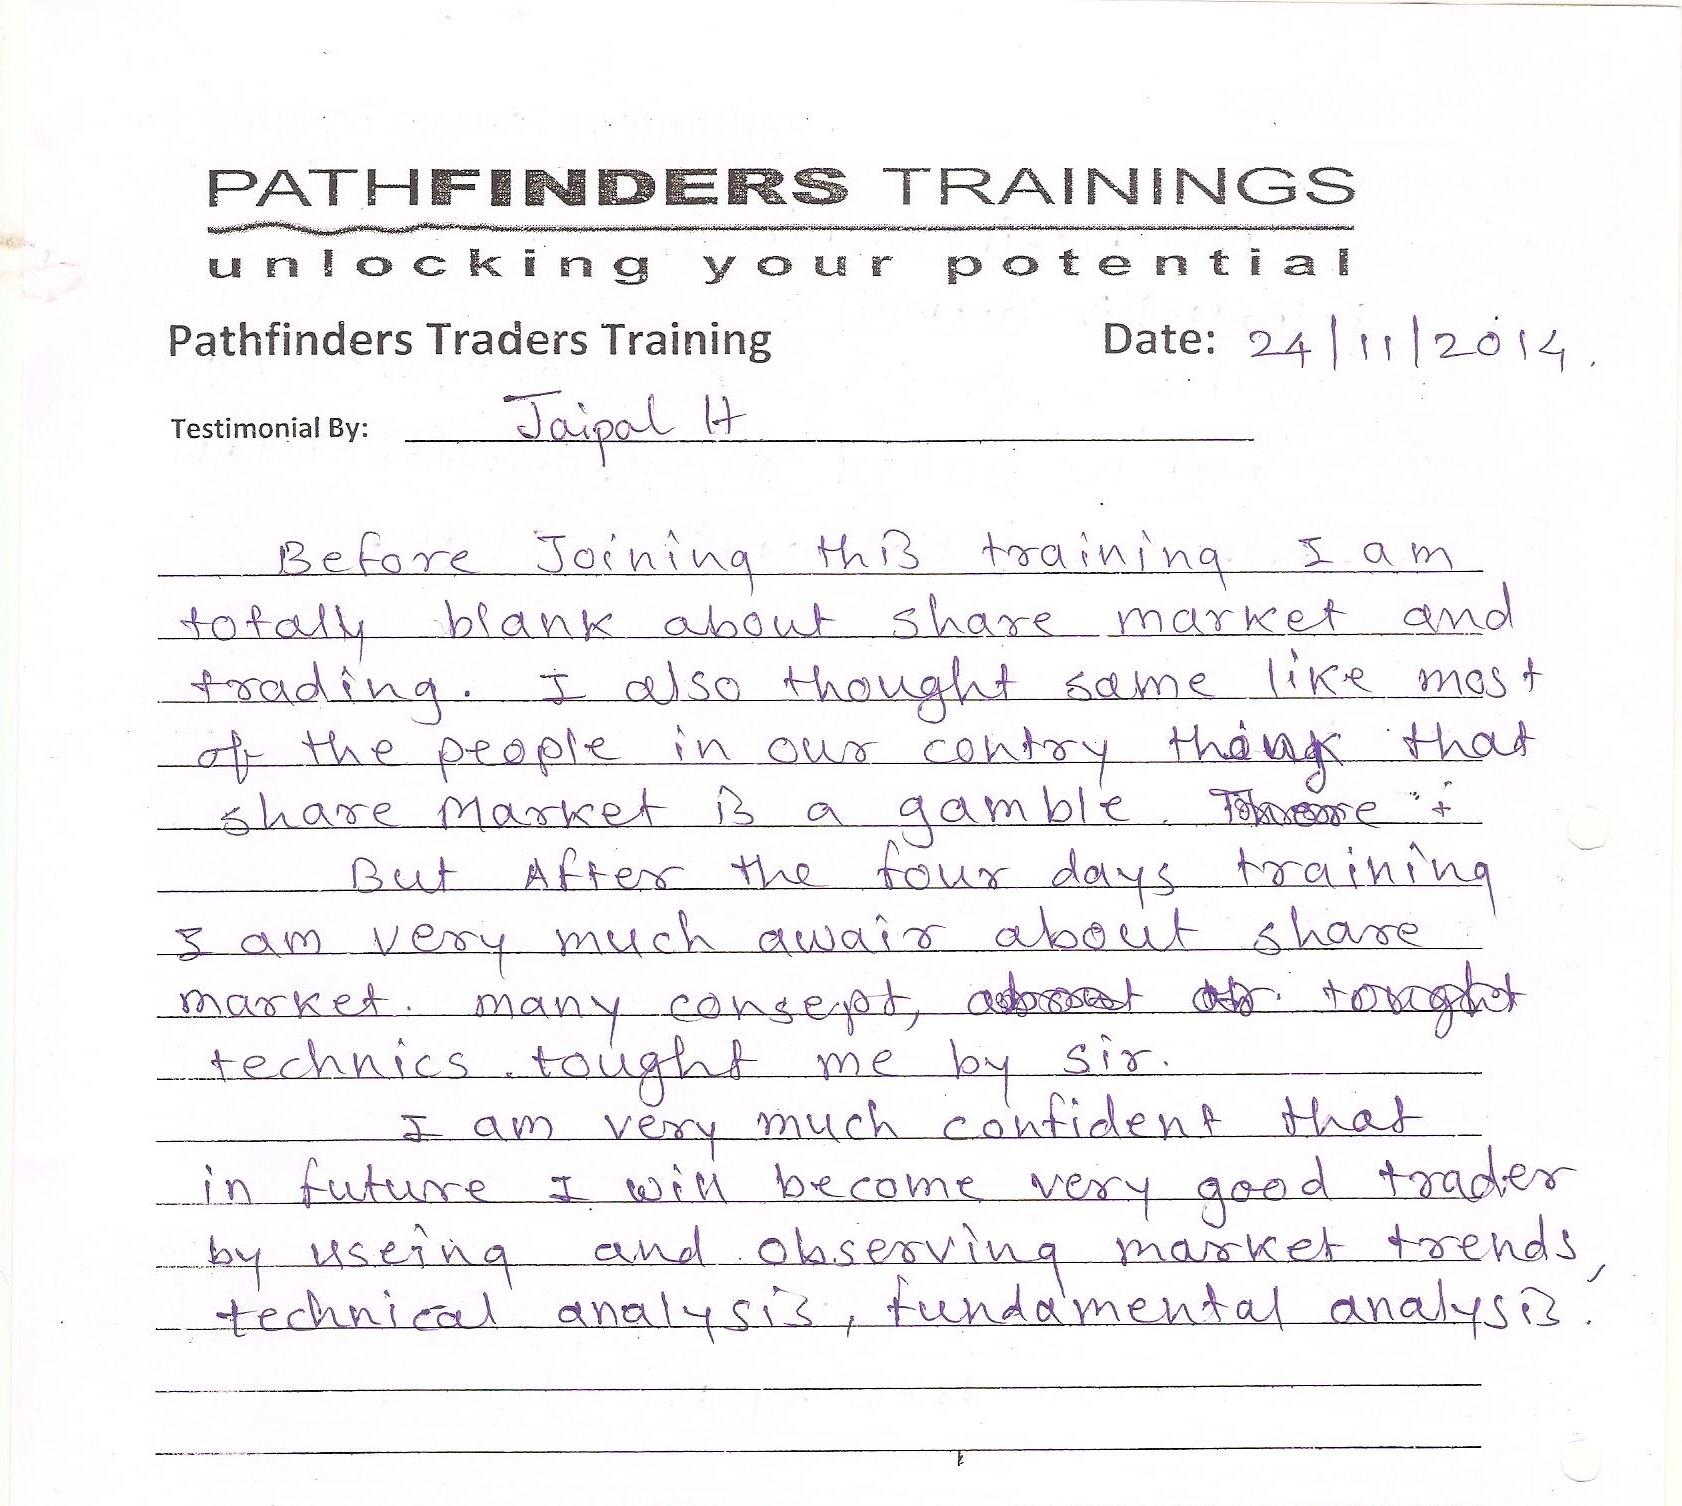 PATHFINDERS TRAININGS
unlocking your potential
Pathfinders Traders Training Date: 24/11/2014.
Testimonial By: Jaipal H
Before Joining this training I am
totally blank about share market and
trading. I also thought same like most
of the people in our contry think that
share Market is a gamble.
But After the four days training
I am very much awair about share
market. many consept,
technics tought me by sir.
I am very much confident that
in future I will become very good trader
by useing and observing market trends,
technical analysis, fundamental analysis.